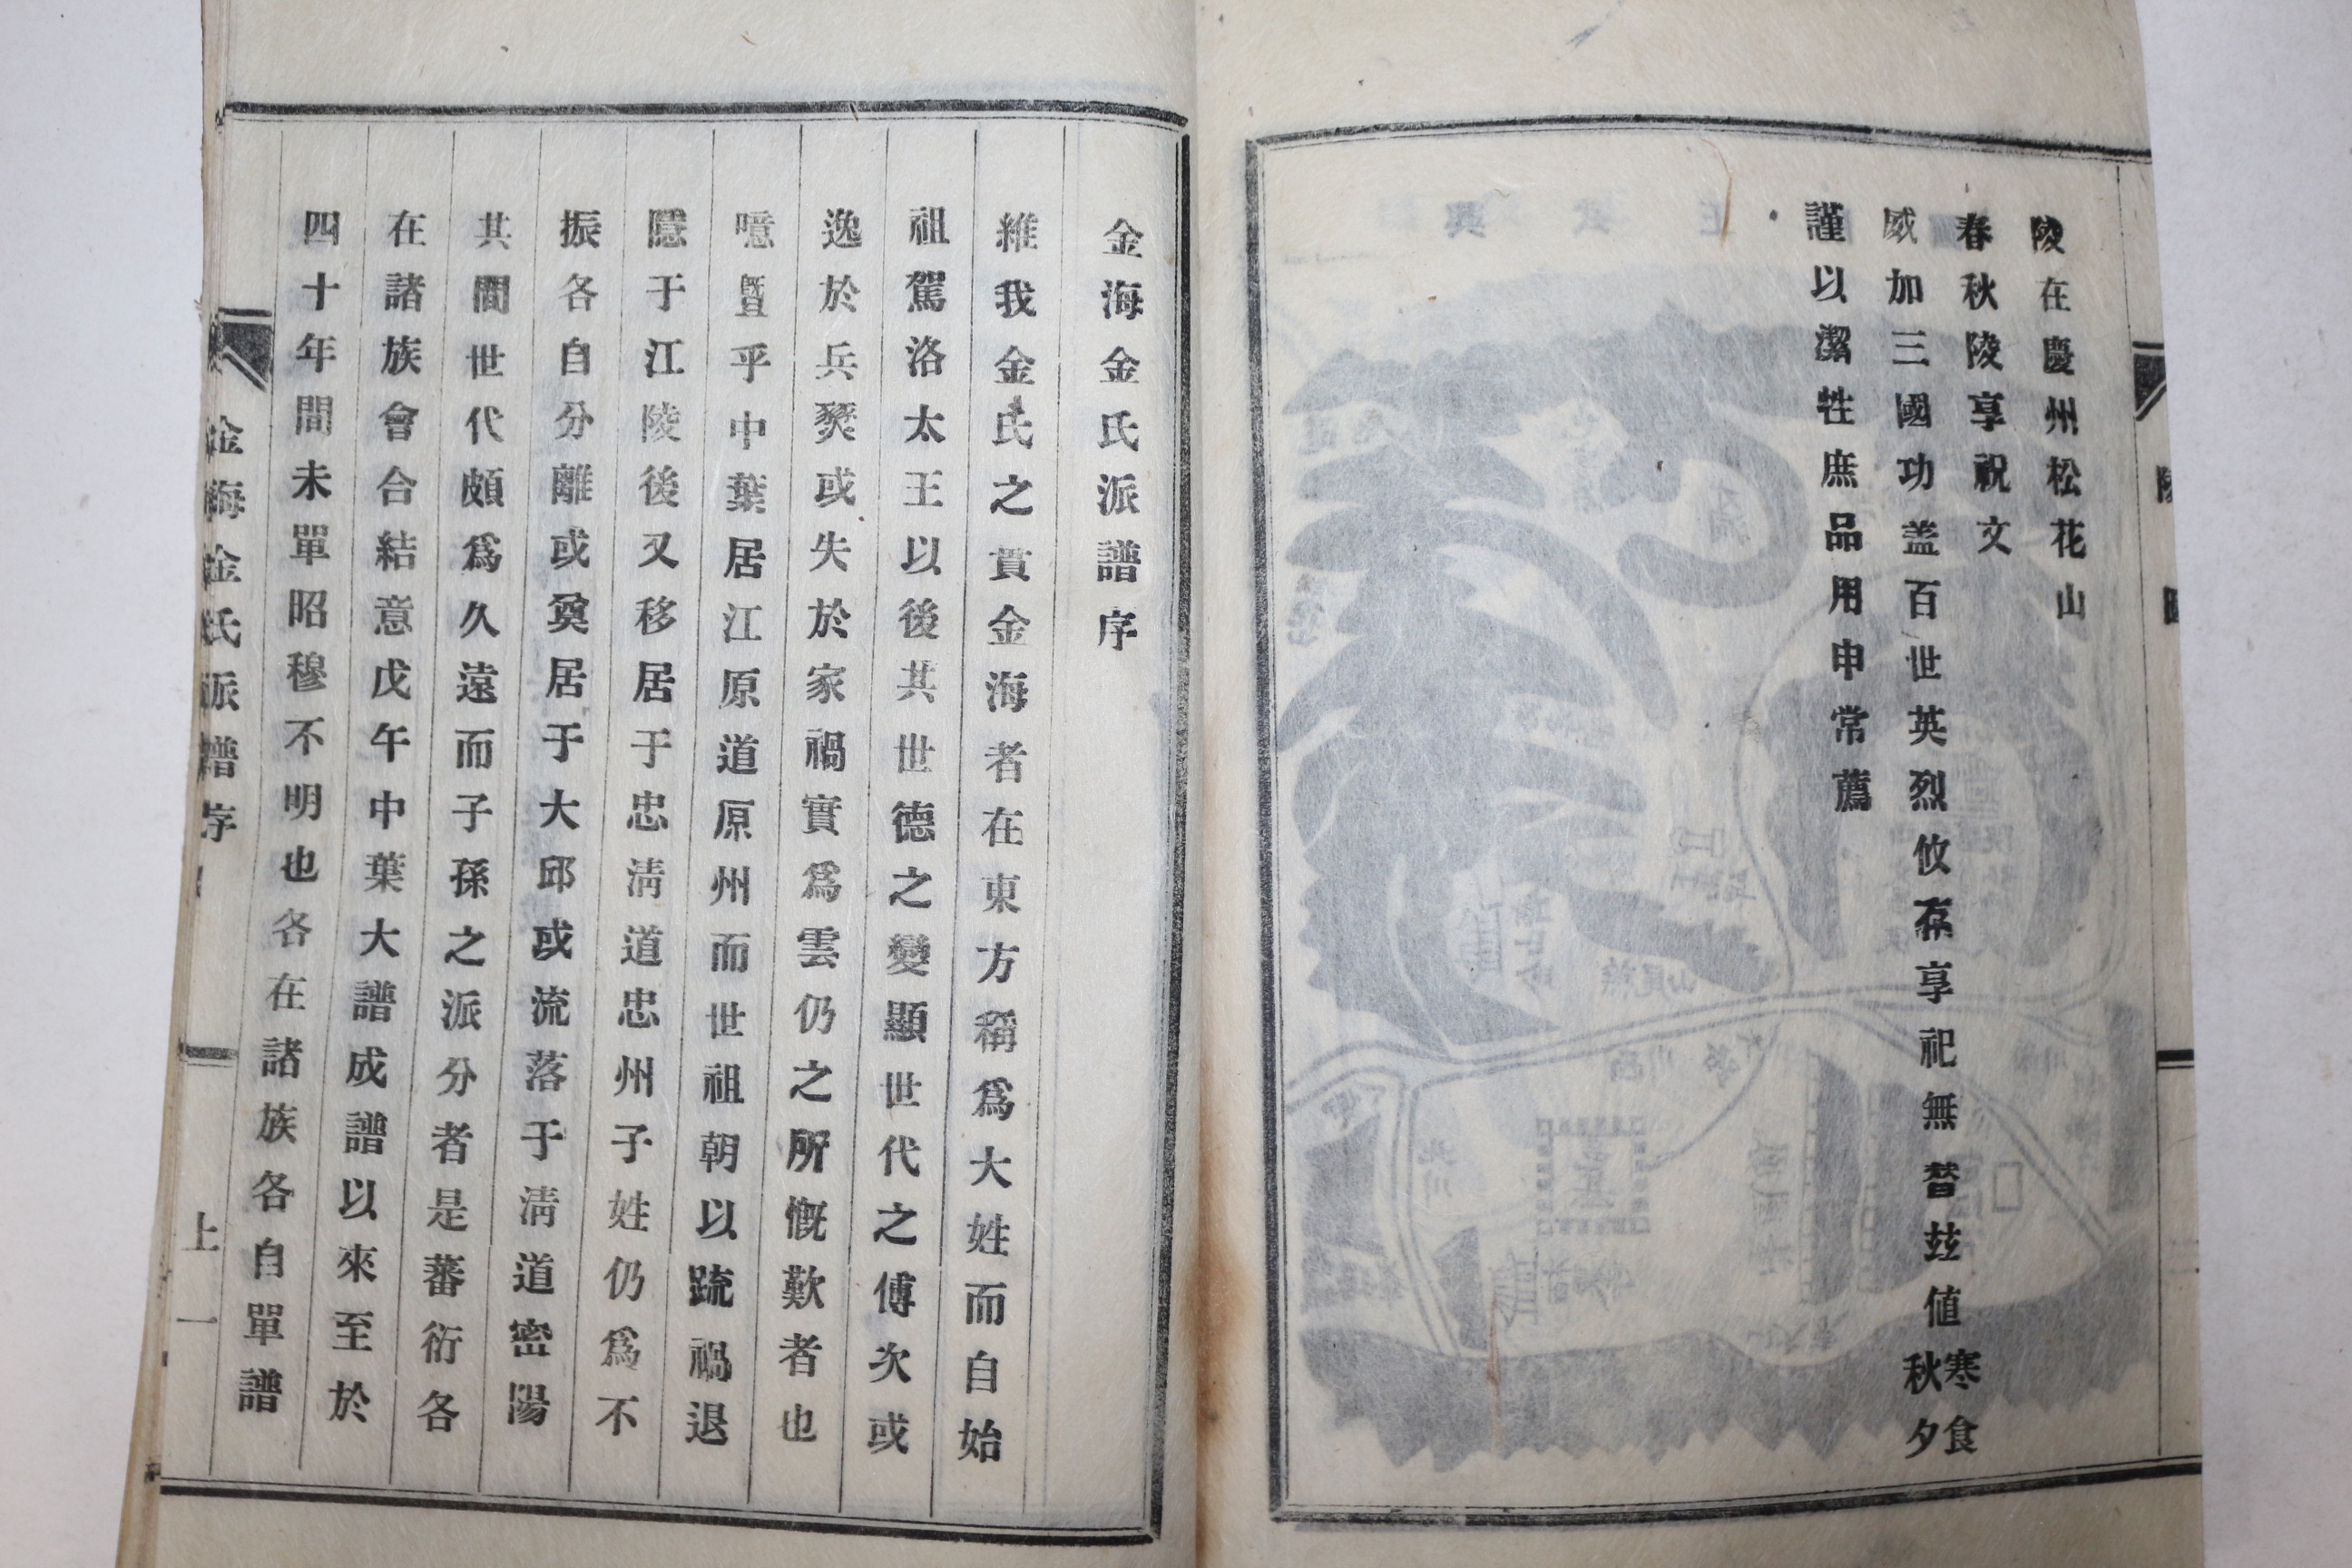 陵在慶州松花山
春秋陵享祝文
威加三國功盖百世英烈攸存享祀無替玆値寒食
秋夕
謹以潔牲庶品用申常薦
金海金氏派譜序
維我金氏之貫金海者在東方稱爲大姓而自始
祖駕洛太王以後其世德之變顯世代之傳次或
逸於兵燹或失於家禍實爲雲仍之所慨歎者也
噫曁乎中葉居江原道原州而世祖朝以䟽禍退
隱于江陵後又移居于忠淸道忠州子姓仍爲不
振各自分離或奠居于大邱或流落于淸道密陽
其間世代頗爲久遠而子孫之派分者是蕃衍各
在諸族會合結意戊午中葉大譜成譜以來至於
四十年間未單昭穆不明也各在諸族各自單譜
金海金氏派譜序
上一